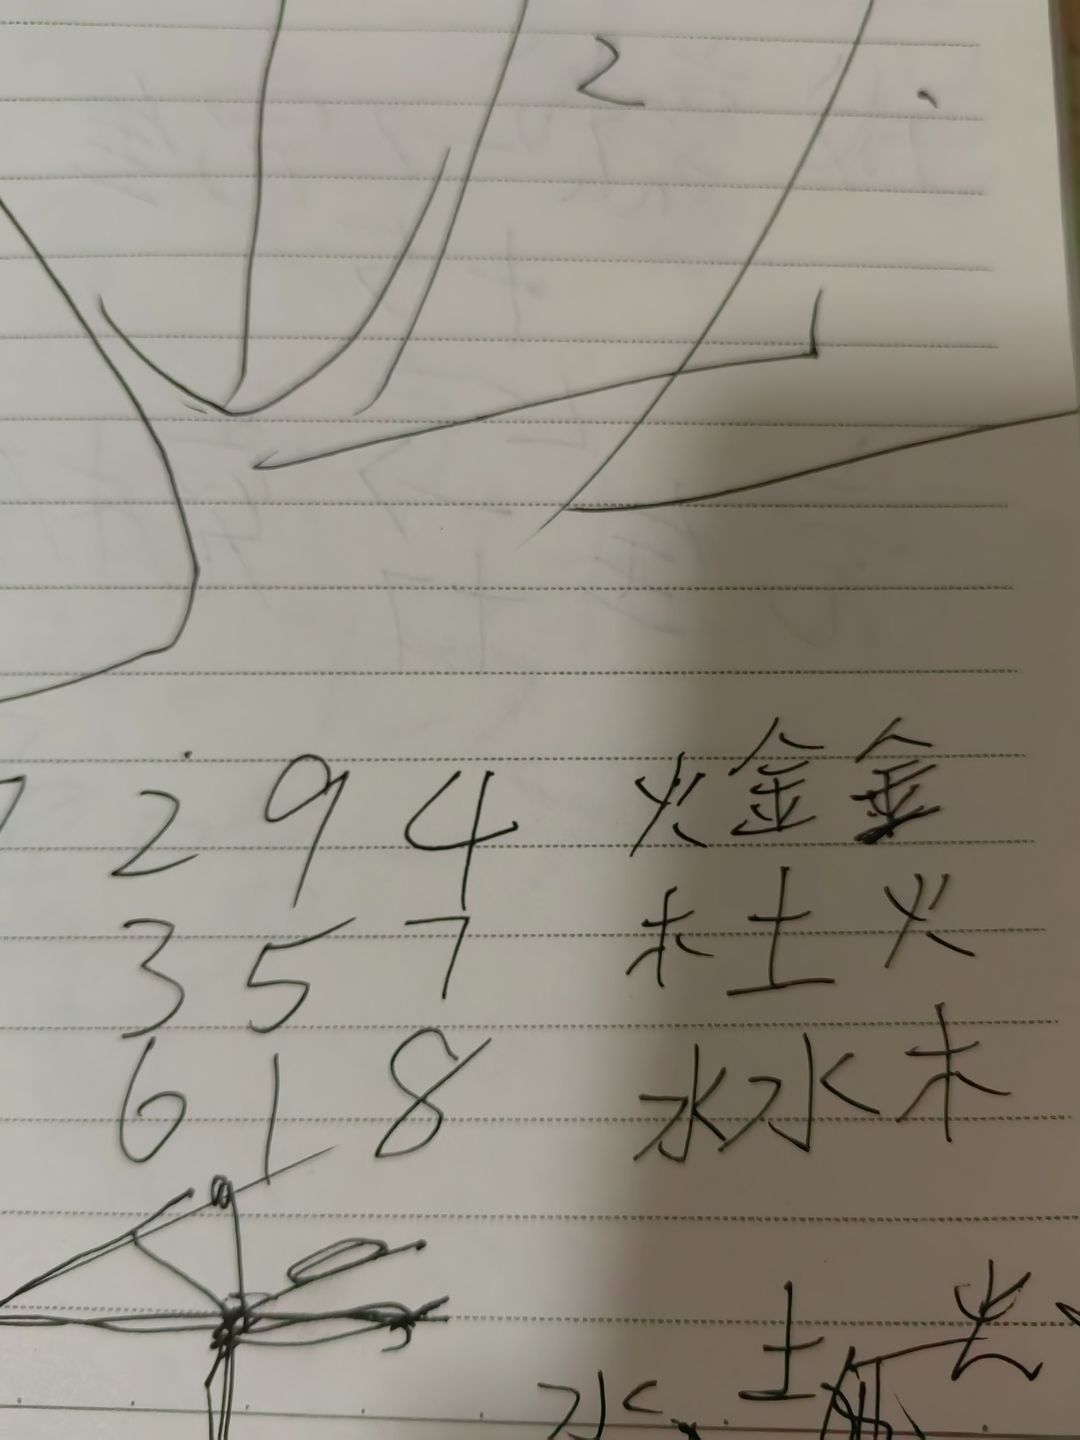 2
2 9 4 火金金
3 5 7 木土火
6 1 8 水水木
土
水